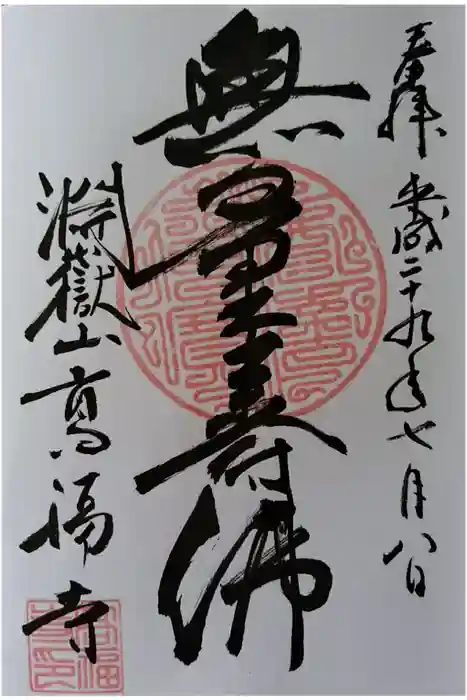 奉拝 平成二十九年七月八日
無量壽佛
淵嶽山高福寺
高福寺印